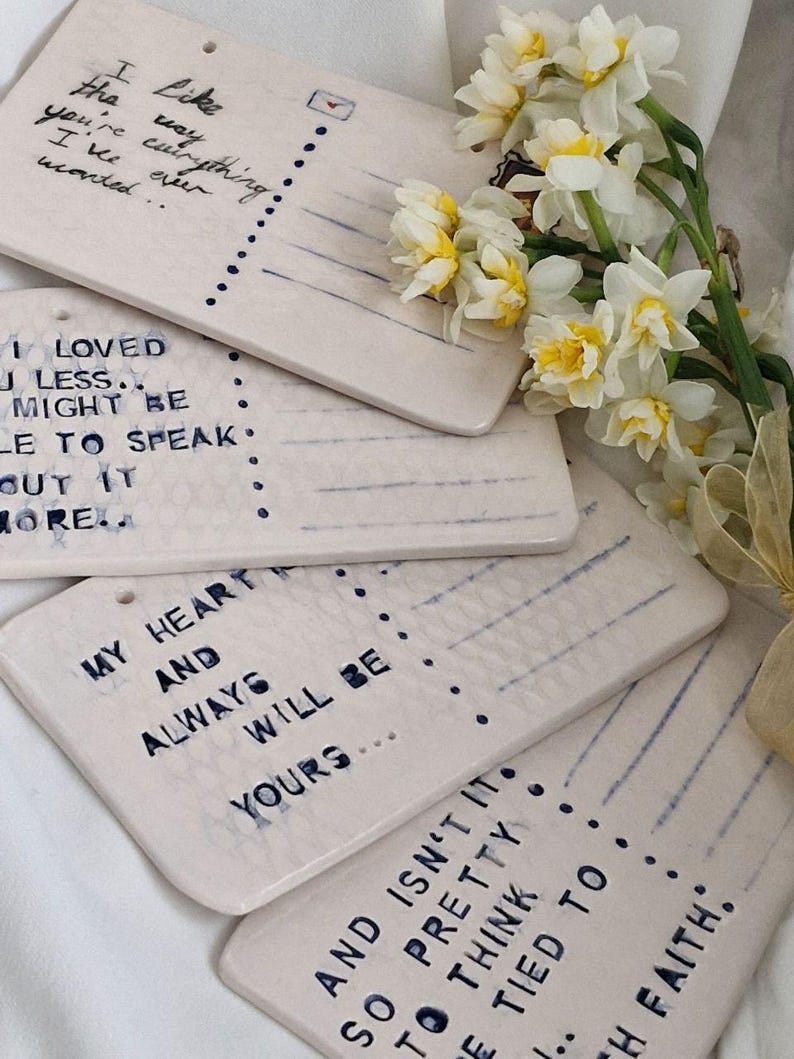 I like
the way
you're everything
I've ever
wanted..
I LOVED
LESS..
MIGHT BE
TO SPEAK
IT
MY HEART
AND
ALWAYS
WILL BE
YOURS...
AND ISN'T IT
SO PRETTY
TO THINK
TIED TO
FAITH.